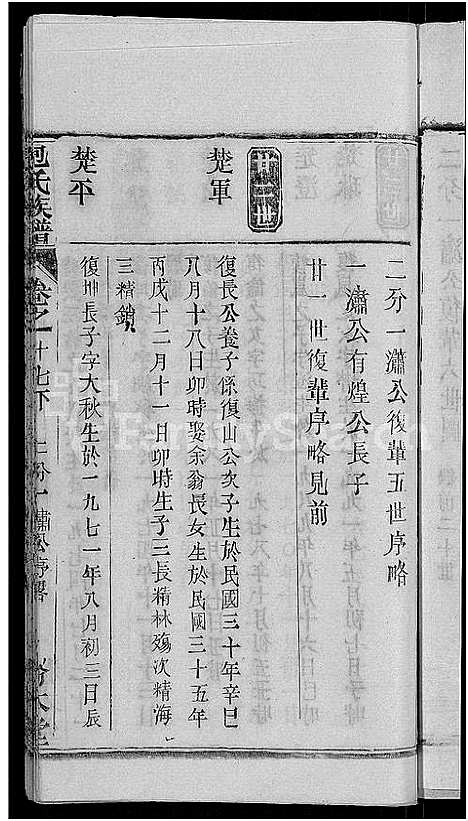 二分一瀟公復輩五世序略
一瀟公有煌公長子
廿一世復輩序略見前
廿二世
楚軍
復長公養子係復山公次子生於民國三十年辛巳
八月十八日卯時娶余翁長女生於民國三十五年
丙戌十二月十一日卯時生子三長精林殤次精海
三精鎖
楚平
復坤長子字大秋生於一九七一年八月初三日辰
包氏族譜
卷之一十七下
二分一瀟公序略